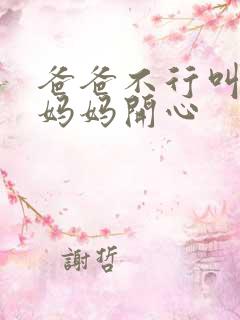 爸爸不行叫
妈妈開心
謝哲